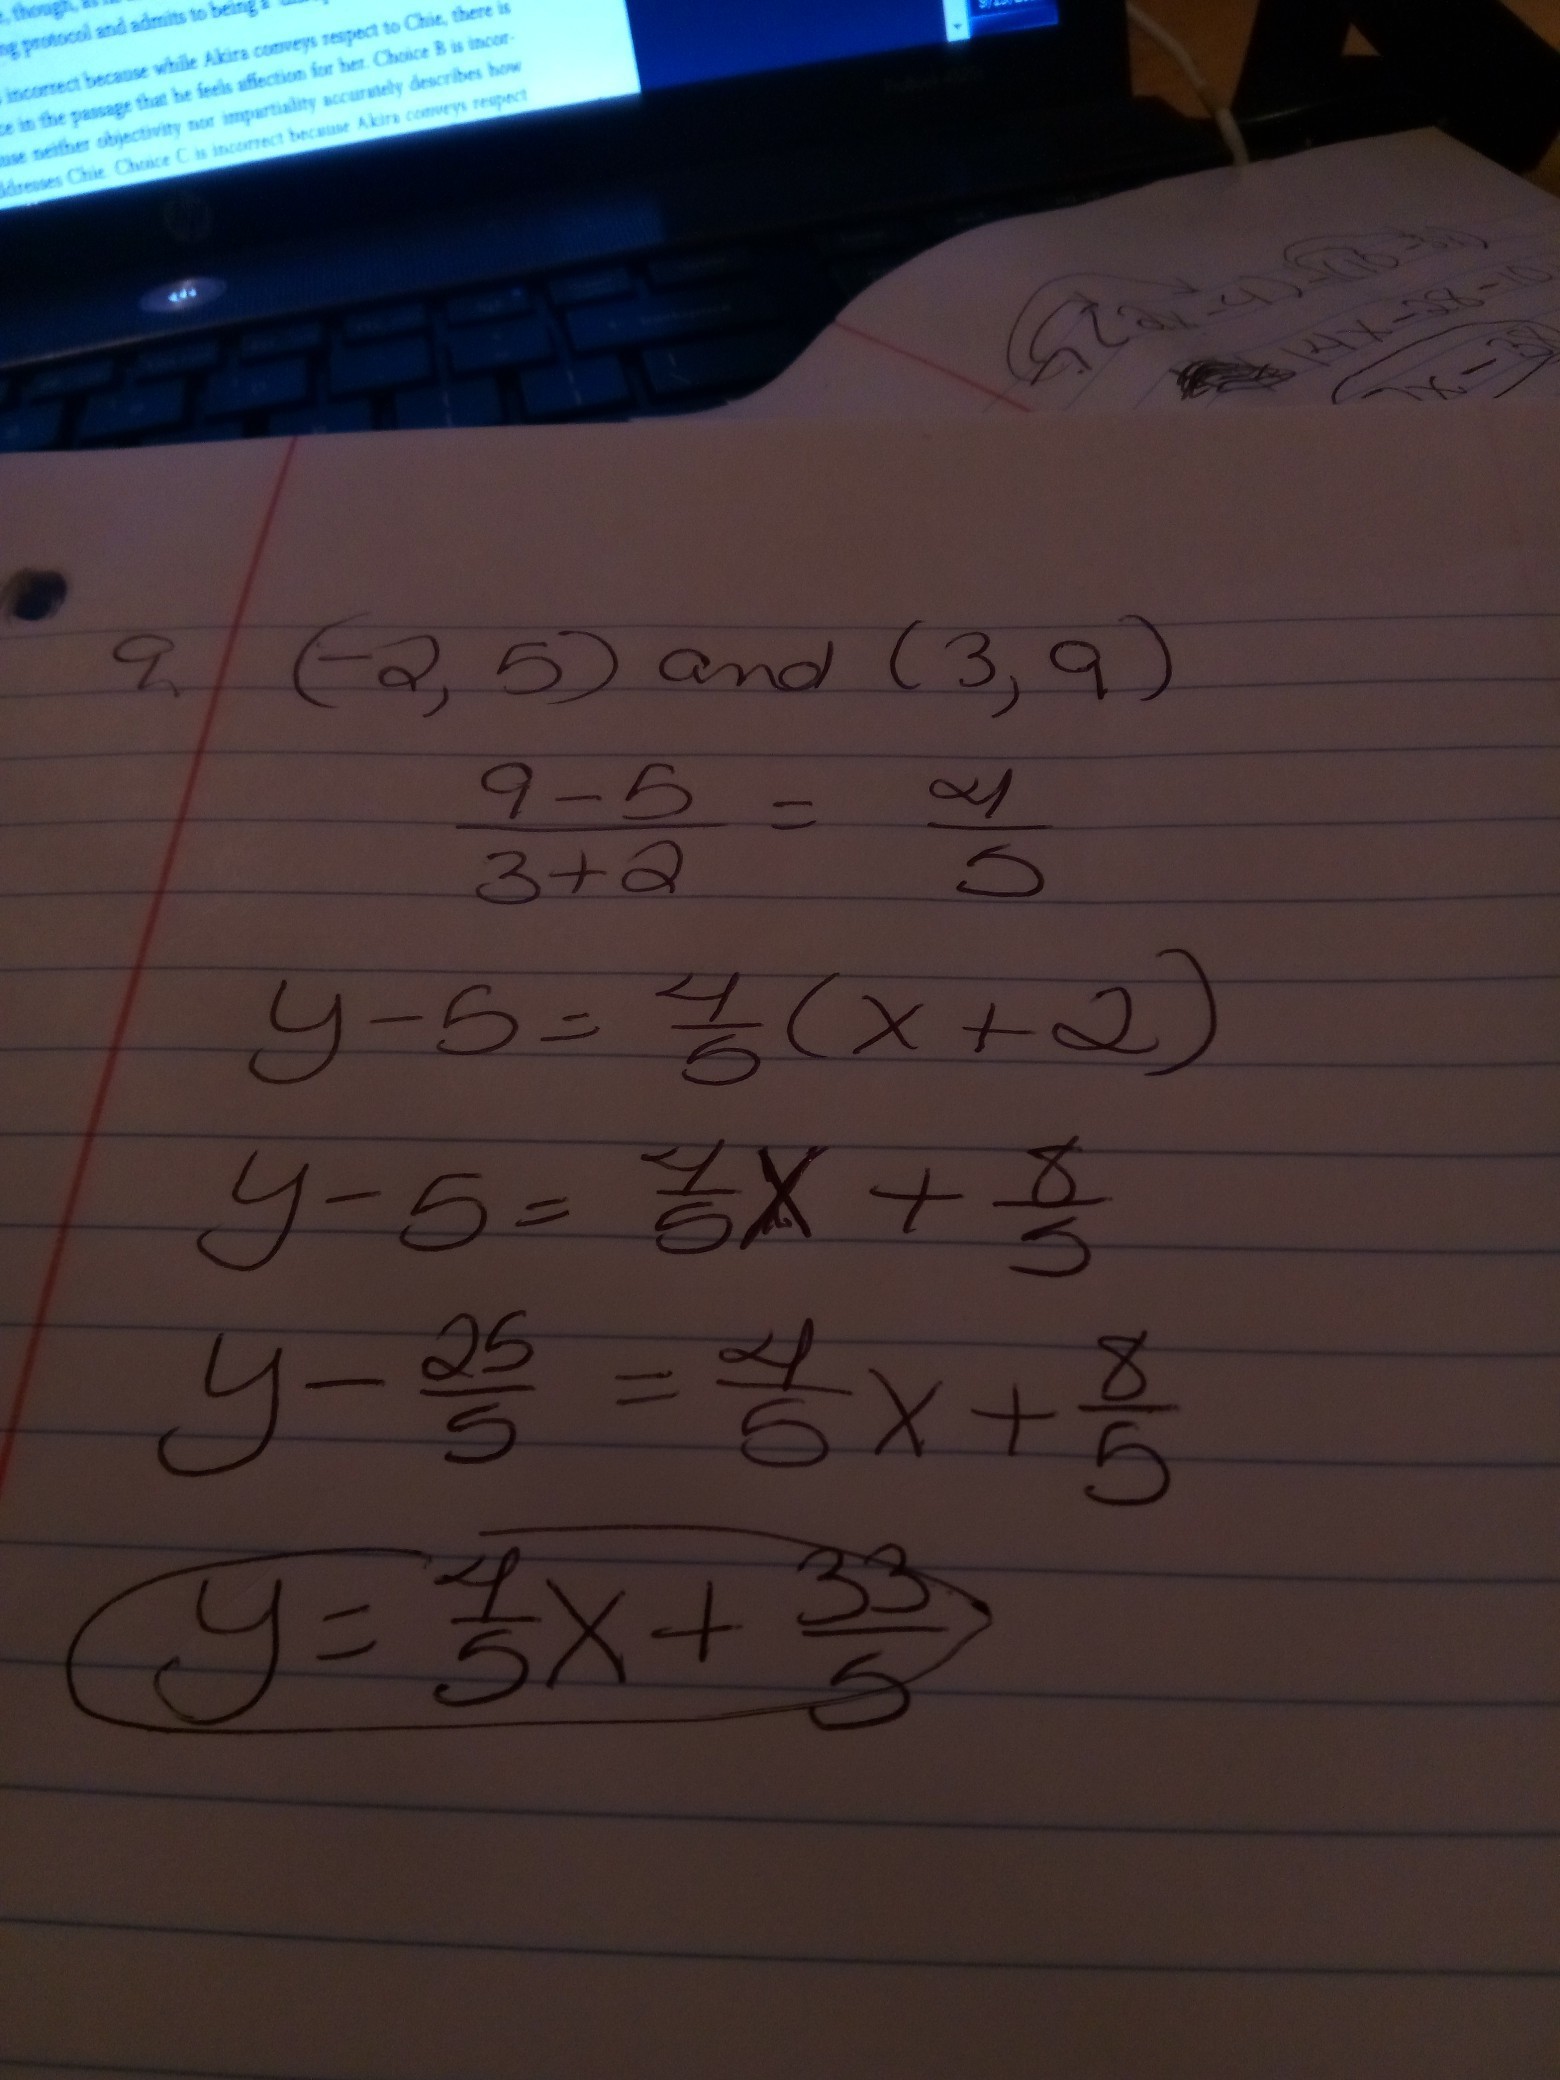 ng protocol and admits to being a
incorrect because while Akira conveys respect to Chie, there is
ce in the passage that he feels affection for her. Choice B is incor-
use neither objectivity nor impartiality accurately describes how
ddresses Chie. Choice C is incorrect because Akira conveys respect
hp
14x-28-10
9. (-2, 5) and (3, 9)
9-5/3+2 = 4/5
y-5= 4/5(x+2)
y-5= 4/5x + 8/5
y- 25/5 = 4/5x + 8/5
y= 4/5x + 33/5